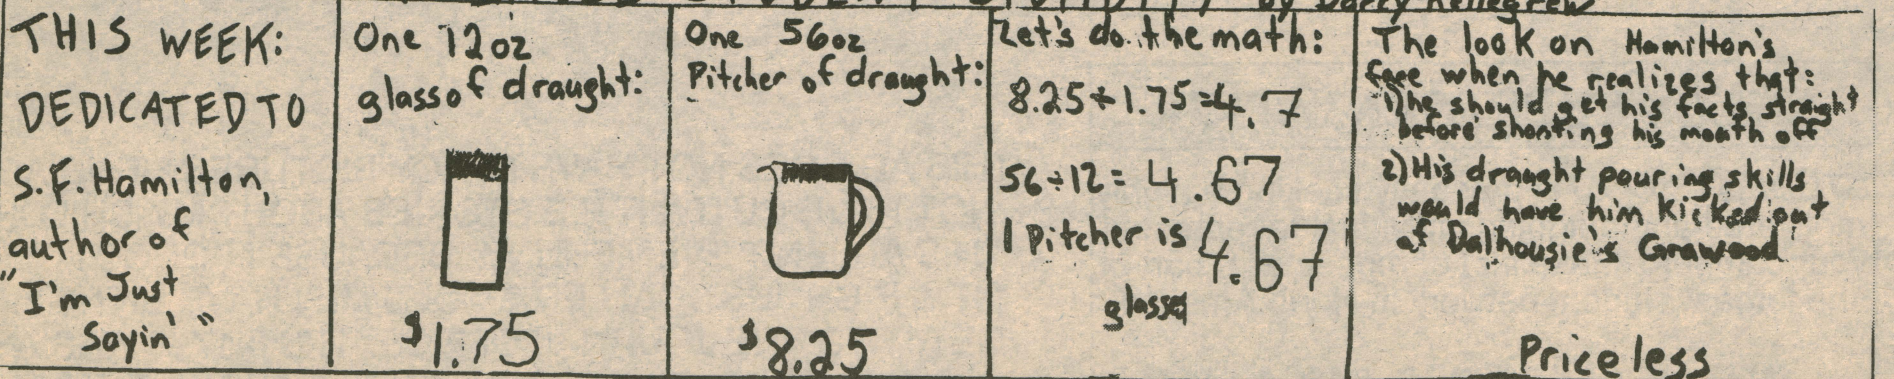 by Barry Kellegrew
THIS WEEK:
DEDICATED TO
S.F. Hamilton,
author of
"I'm Just
Sayin'"
One 12oz
glass of draught:
$1.75
One 56oz
Pitcher of draught:
$8.25
Let's do the math:
8.25÷1.75=4.7
56÷12= 4.67
1 Pitcher is 4.67
glasses
The look on Hamilton's
face when he realizes that:
1) he should get his facts straight
before shooting his mouth off
2) His draught pouring skills
would have him kicked out
of Dalhousie's Grawood
Priceless